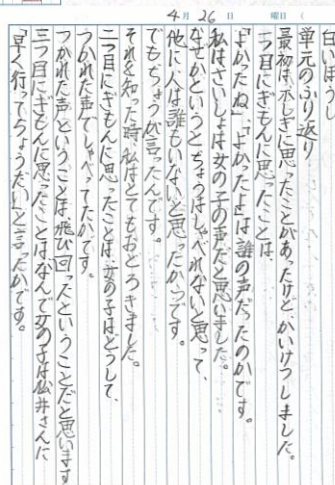 4月26日 曜日(
白いぼうし
単元のふり返り
最初は、ふしぎに思ったことがあったけど、かいけつしました。
一つ目にぎもんに思ったことは、
「よかったね」「よかったよ」は誰の声だったのかです。
私はさいしょは女の子の声だと思いました。
なぜかというとちょうはしゃべれないと思って、
他に人は誰もいないと思ったからです。
でもちょうが言ったんです。
それを知った時、私はとてもおどろきました。
二つ目にぎもんに思ったことは、女の子はどうして、
つかれた声でしゃべってたかです。
つかれた声ということは飛び回ったということだと思います
三つ目にぎもんに思ったことは、なんで女の子は松井さんに
「早く行ってちょうだい」と言ったかです。